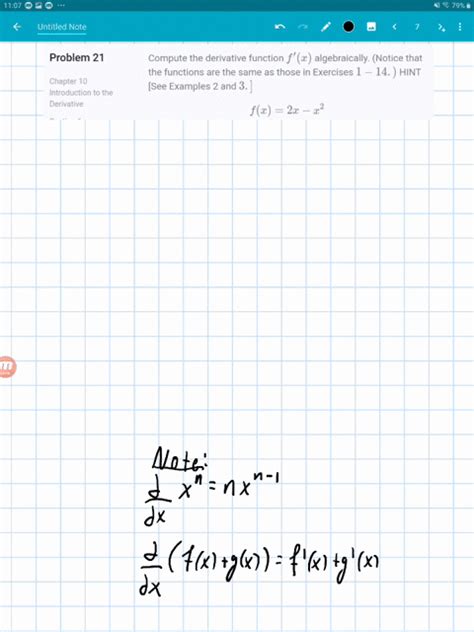 11:07 79%
Untitled Note 7
Problem 21
Chapter 10
Introduction to the
Derivative
Compute the derivative function f'(x) algebraically. (Notice that
the functions are the same as those in Exercises 1 − 14. ) HINT
[See Examples 2 and 3. ]
f(x) = 2x − x²
Note:
d/dx xⁿ = nxⁿ⁻¹
d/dx (f(x)+g(x)) = f'(x)+g'(x)